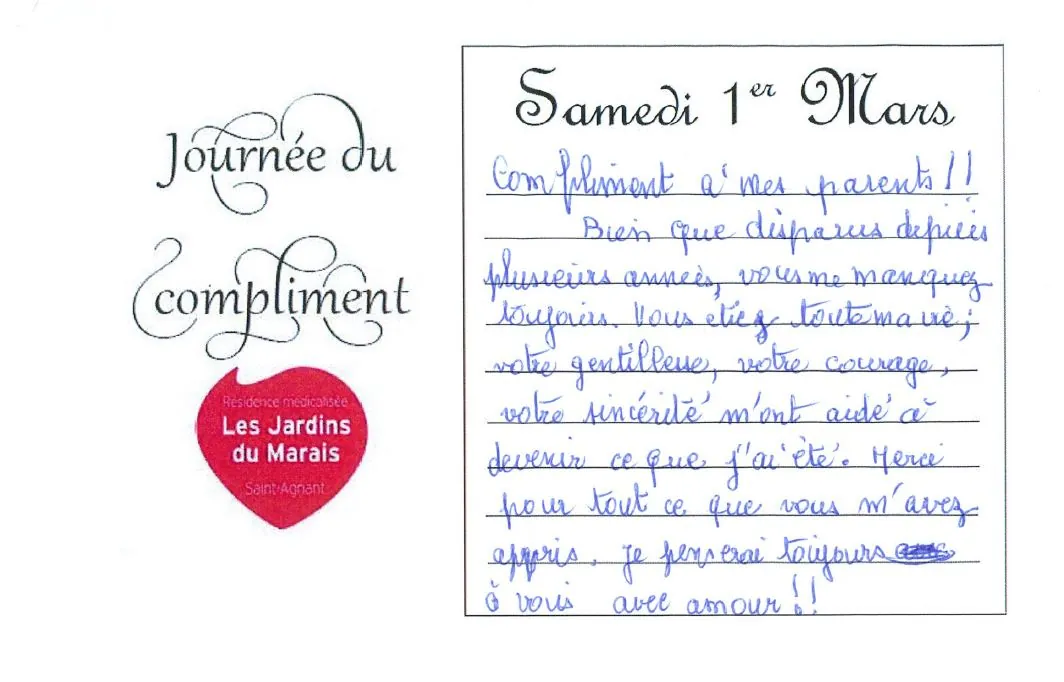 Journée du
compliment
Résidence médicalisée
Les Jardins
du Marais
Saint-Agnant
Samedi 1er Mars
Compliment à mes parents !!
Bien que disparus depuis
plusieurs années, vous me manquez
toujours. Vous étiez toute ma vie ;
votre gentillesse, votre courage,
votre sincérité m'ont aidé à
devenir ce que j'ai été. Merci
pour tout ce que vous m'avez
appris. Je penserai toujours
à vous avec amour !!